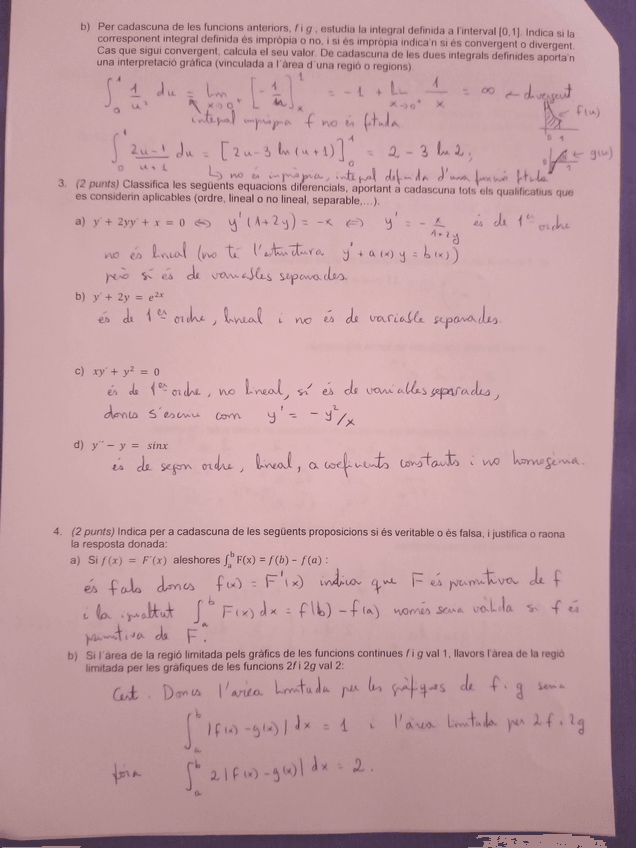 b) Per cadascuna de les funcions anteriors, f i g, estudia la integral definida a l'interval [0,1]. Indica si la
corresponent integral definida és impròpia o no, i si és impròpia indica'n si és convergent o divergent.
Cas que sigui convergent, calcula el seu valor. De cadascuna de les dues integrals definides aporta'n
una interpretació gràfica (vinculada a l'àrea d'una regió o regions).
∫₀¹ 1/u² du = lim x→0⁺ [-1/u]ₓ¹ = -1 + lim x→0⁺ 1/x = ∞ ← divergent
f(u)
integral impròpia f no és fitada
∫₀¹ (2u-1)/(u+1) du = [2u - 3 ln(u+1)]₀¹ = 2 - 3 ln 2;
g(u)
↳ no és impròpia, integral definida d'una funció fitada
3. (2 punts) Classifica les següents equacions diferencials, aportant a cadascuna tots els qualificatius que
es considerin aplicables (ordre, lineal o no lineal, separable,...).
a) y' + 2yy' + x = 0 ⇔ y'(1+2y) = -x ⇔ y' = - x/(1+2y) és de 1er ordre
no és lineal (no té l'estructura y' + a(x) y = b(x))
però sí és de variables separades.
b) y' + 2y = e²ˣ
és de 1er ordre, lineal i no és de variable separades.
c) xy' + y² = 0
és de 1er ordre, no lineal, sí és de variables separades,
doncs s'escriu com y' = - y²/x
d) y'' − y = sinx
és de segon ordre, lineal, a coeficients constants i no homogènia.
4. (2 punts) Indica per a cadascuna de les següents proposicions si és veritable o és falsa, i justifica o raona
la resposta donada:
a) Si f(x) = F'(x) aleshores ∫ₐᵇ F(x) = f(b) − f(a) :
és fals doncs f(x) = F'(x) indica que F és primitiva de f
i la igualtat ∫ₐᵇ F(x) dx = f(b) - f(a) només seria vàlida si f és
primitiva de F.
b) Si l'àrea de la regió limitada pels gràfics de les funcions continues f i g val 1, llavors l'àrea de la regió
limitada per les gràfiques de les funcions 2f i 2g val 2:
Cert. Doncs l'àrea limitada per les gràfiques de f i g seria
∫ₐᵇ |f(x) - g(x)| dx = 1 i l'àrea limitada per 2f i 2g
fóra ∫ₐᵇ 2|f(x) - g(x)| dx = 2.